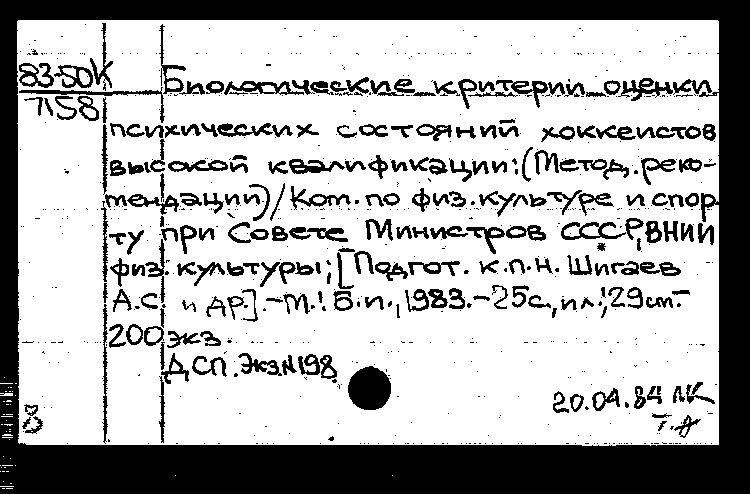 83-50К Биологические критерии оценки
7158
психических состояний хоккеистов
высокой квалификации: (Метод. реко-
мендации) / Ком. по физ. культуре и спор-
ту при Совете Министров СССР, ВНИИ
физ. культуры; [Подгот. к.п.н. Шигаев
А.С. и др.]. - М.: Б.и., 1983. - 25с., ил.; 29 см. -
200 экз.
ДСП. Экз. N198
20.04.84 ЛК
8